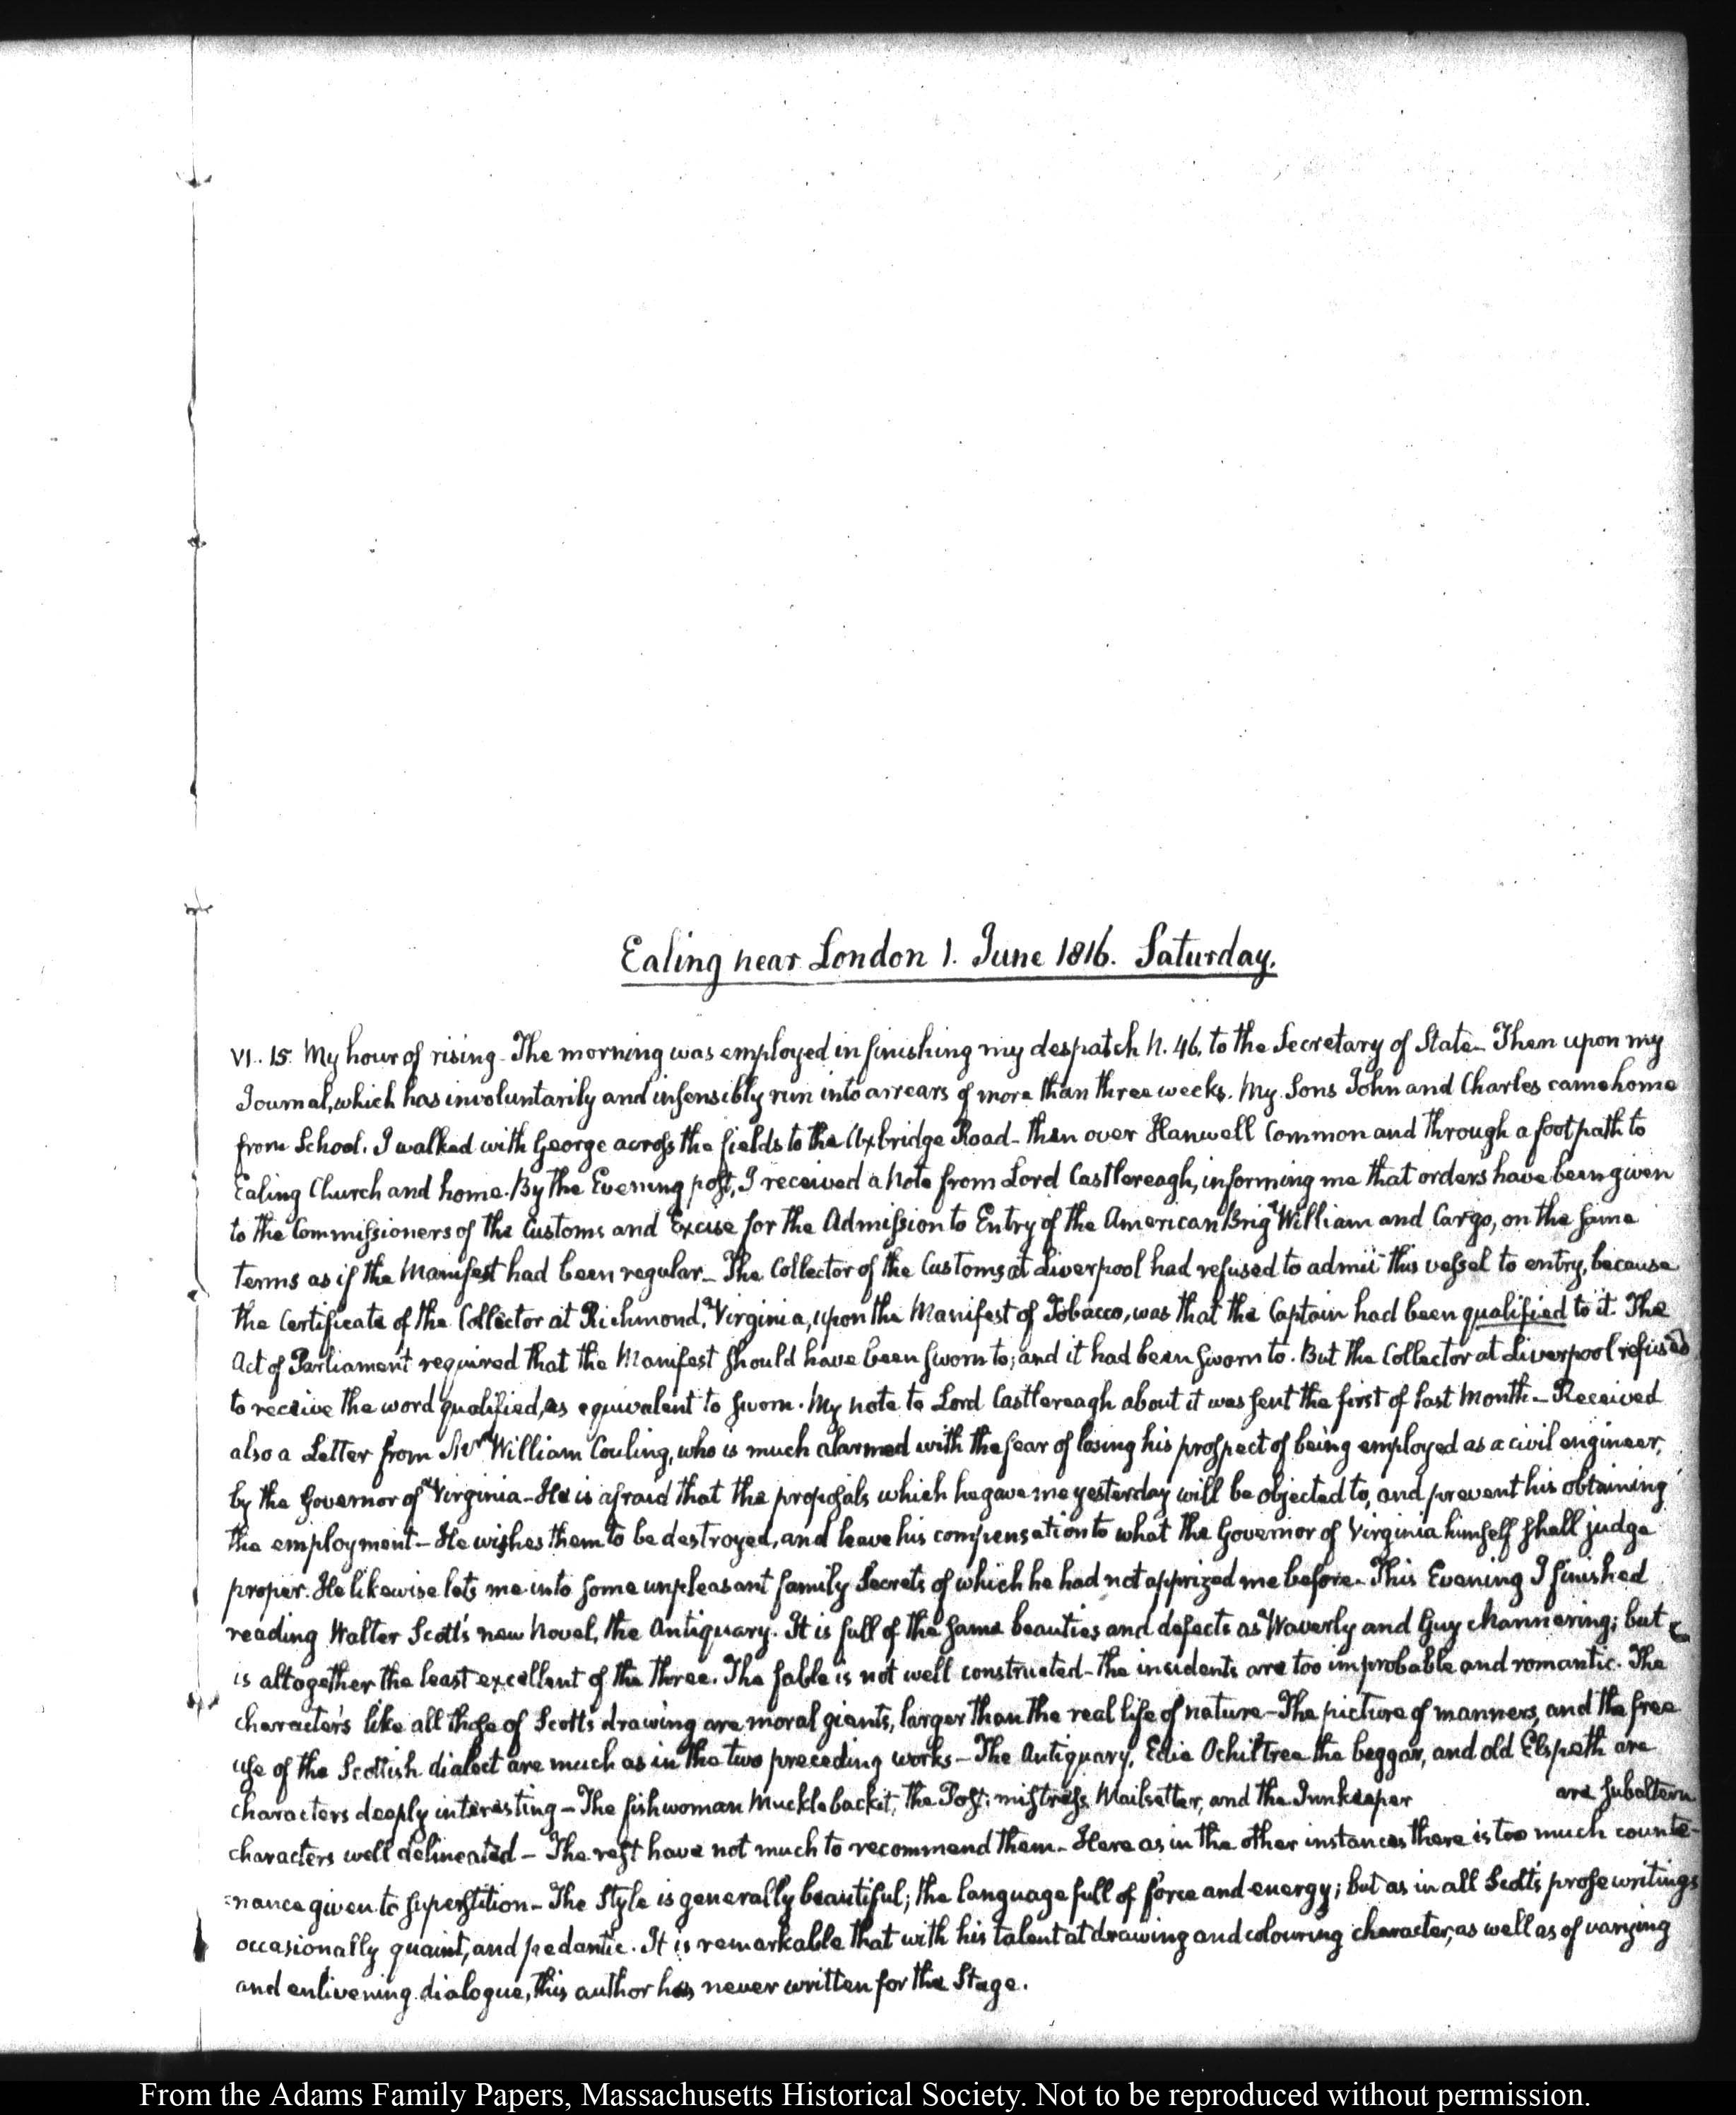 Ealing near London 1. June 1816. Saturday.
VI. 15. My hour of rising - The morning was employed in finishing my despatch N. 46. to the Secretary of State - Then upon my
Journal, which has involuntarily and insensibly run into arrears of more than three weeks. My Sons John and Charles came home
from School. I walked with George across the fields to the Uxbridge Road - then over Hanwell Common and through a foot path to
Ealing Church and home. By the Evening post, I received a Note from Lord Castlereagh, informing me that orders have been given
to the Commissioners of the Customs and Excise for the Admission to Entry of the American Brig William and Cargo, on the same
terms as if the Manifest had been regular - The Collector of the Customs at Liverpool had refused to admit this vessel to entry, because
the Certificate of the Collector at Richmond, Virginia, upon the Manifest of Tobacco, was that the Captain had been qualified to it. The
Act of Parliament required that the Manifest should have been sworn to; and it had been sworn to. But the Collector at Liverpool refused
to receive the word qualified, as equivalent to sworn. My note to Lord Castlereagh about it was sent the first of last Month - Received
also a Letter from Mr William Couling, who is much alarmed with the fear of losing his prospect of being employed as a civil engineer,
by the Governor of Virginia - He is afraid that the proposals which he gave me yesterday will be objected to, and prevent his obtaining
the employment - He wishes them to be destroyed, and leave his compensation to what the Governor of Virginia himself shall judge
proper. He likewise lets me into some unpleasant family Secrets of which he had not apprized me before - This Evening I finished
reading Walter Scott's new Novel, the Antiquary. It is full of the same beauties and defects as Waverly and Guy Mannering; but
is altogether the least excellent of the three. The fable is not well constructed - the incidents are too improbable and romantic. The
characters like all those of Scott's drawing are moral giants, larger than the real life of nature - The picture of manners, and the free
use of the Scottish dialect are much as in the two preceding works - The Antiquary, Edie Ochiltree the beggar, and old Elspeth are
characters deeply interesting - The fishwoman Mucklebackit, the Post-mistress Mailsetter, and the Innkeeper are subaltern
characters well delineated - The rest have not much to recommend them - Here as in the other instances there is too much counte-
=nance given to superstition - The Style is generally beautiful; the language full of force and energy; but as in all Scott's prose writings
occasionally quaint, and pedantic. It is remarkable that with his talent at drawing and colouring character, as well as of varying
and enlivening dialogue, this author has never written for the Stage.
From the Adams Family Papers, Massachusetts Historical Society. Not to be reproduced without permission.